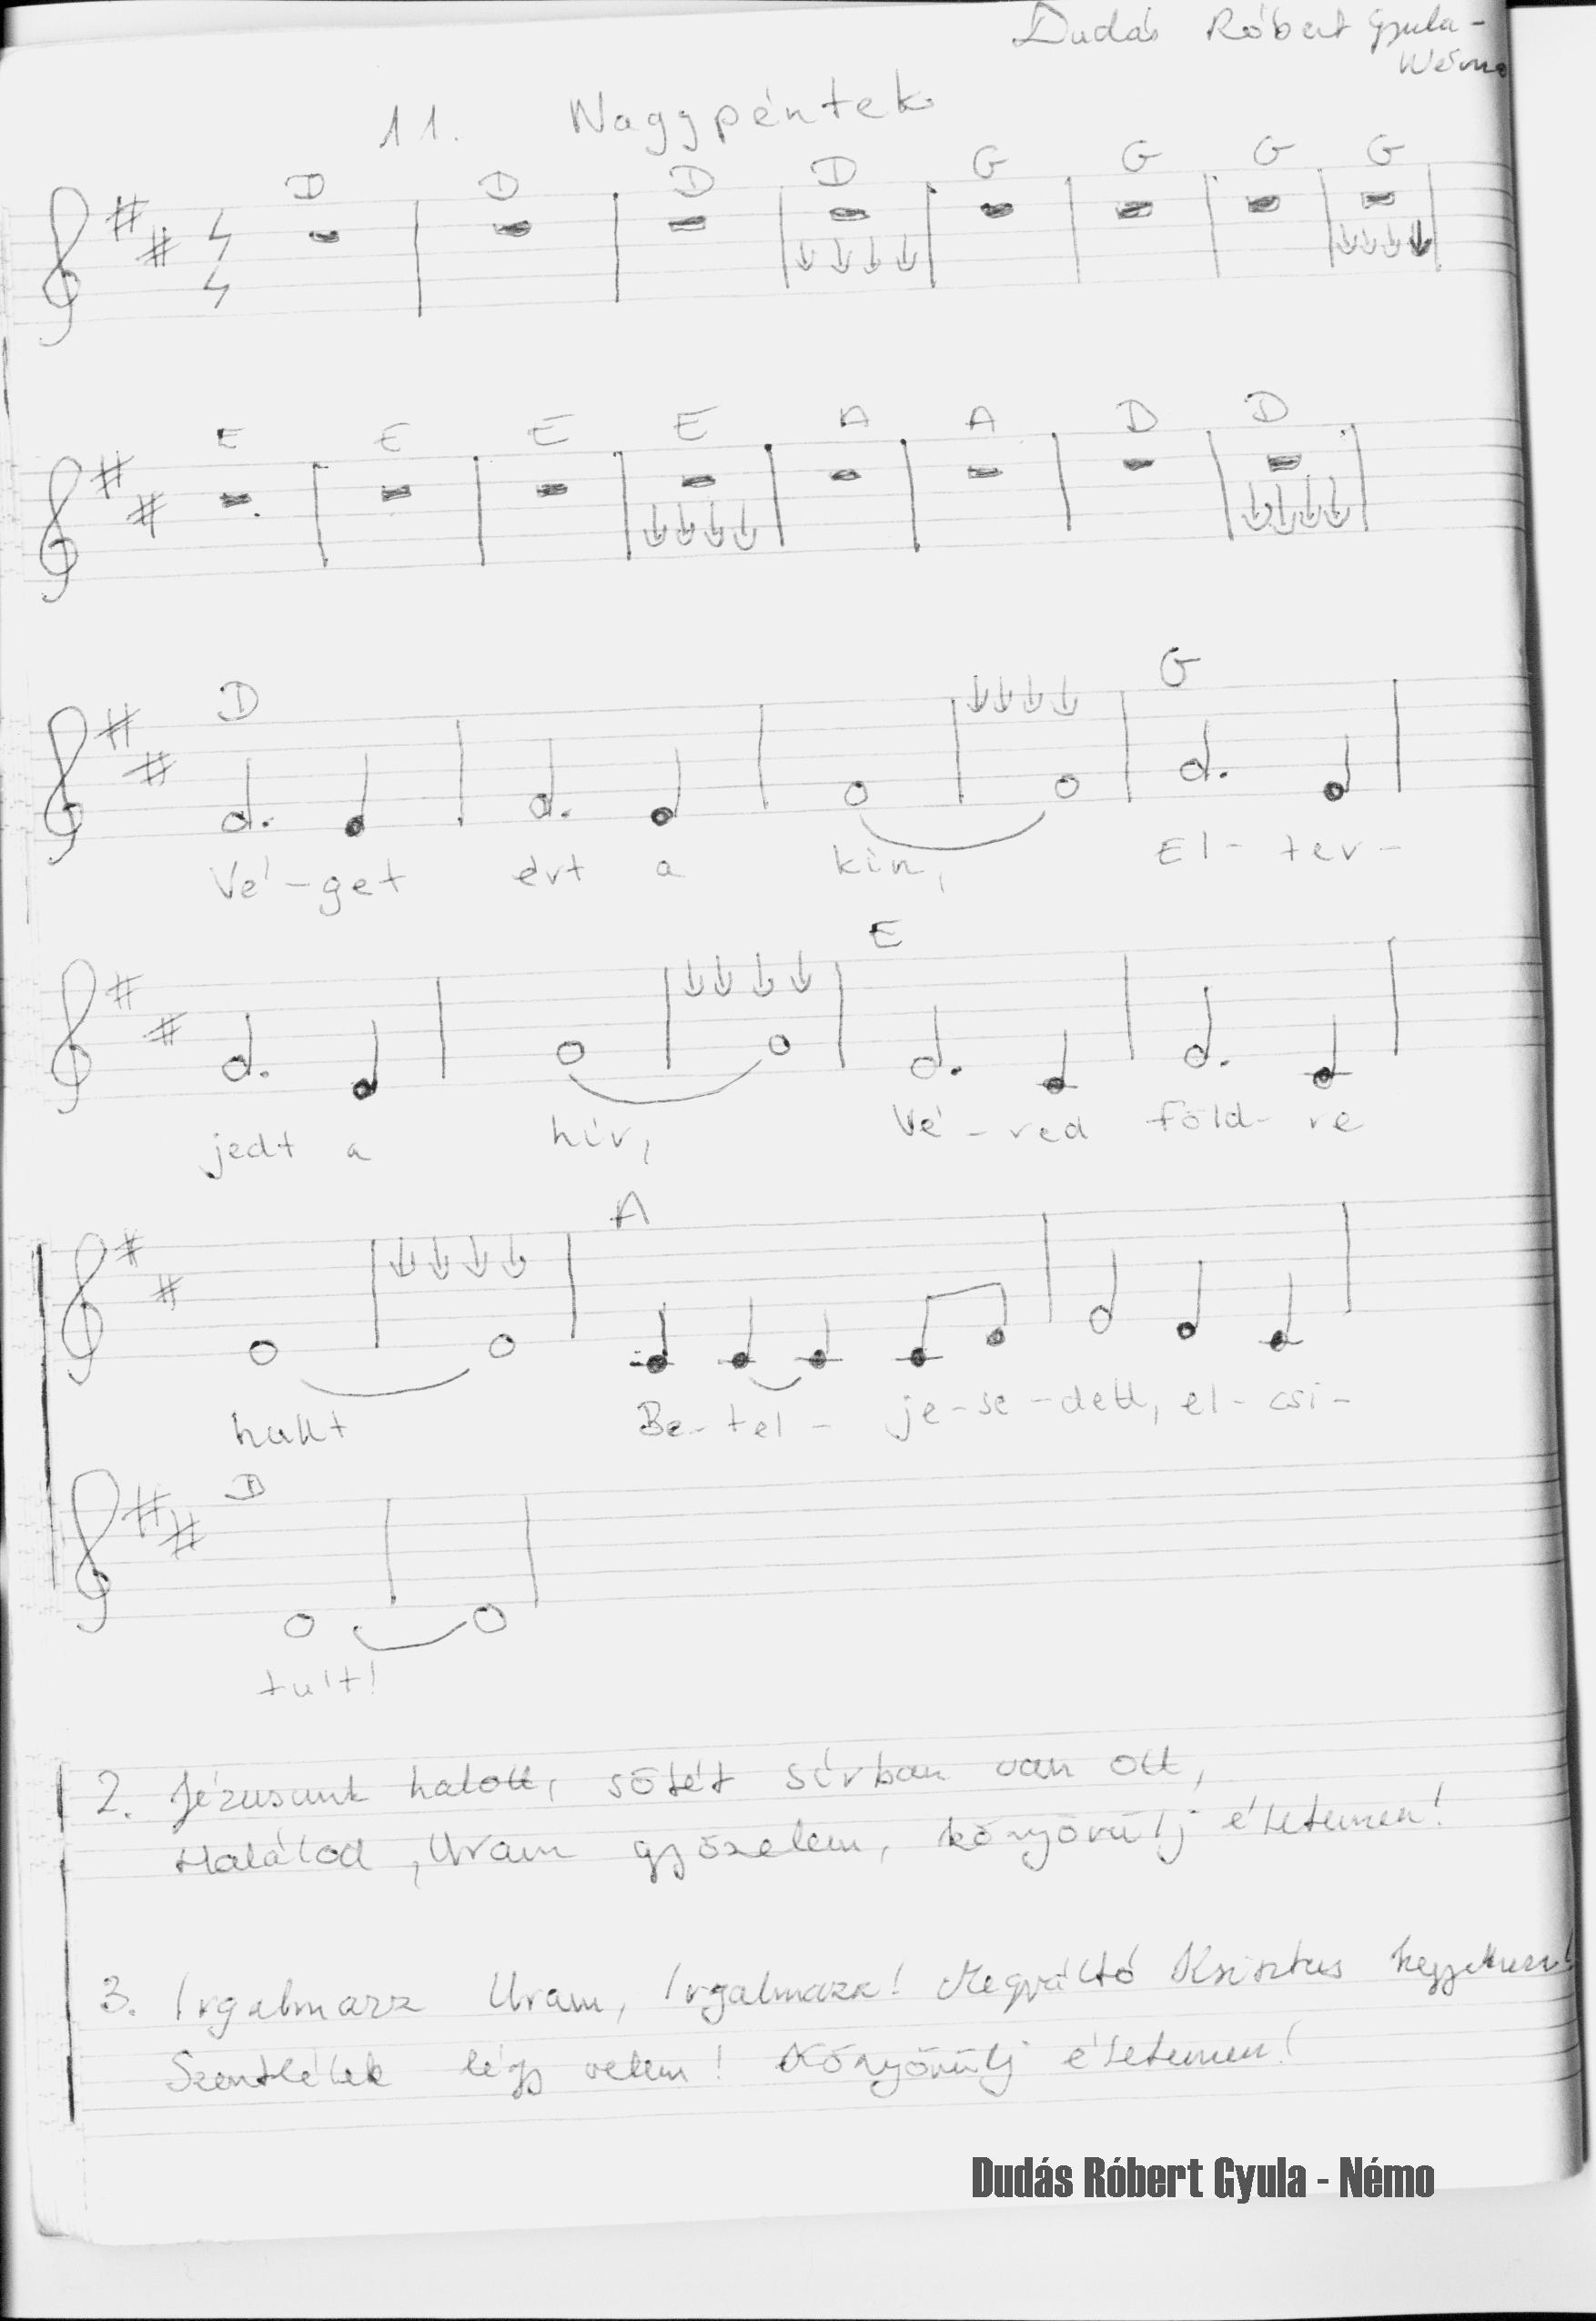 Dudás Róbert Gyula -
Némo
11. Nagypéntek
D D D D G G G G
E E E E A A D D
D G
Vé-get ért a kín, El-ter-
E
jedt a hír, Vé-red föld-re
A
hullt Be-tel-je-se-dett, el-csi-
D
tult!
2. Jézusunk halott, sötét sírban van ott,
Halálod, Uram győzelem, könyörülj életemen!
3. Irgalmazz Uram, Irgalmazz! Megváltó Krisztus kegyelmezz!
Szentlélek légy velem! Könyörülj életemen!
Dudás Róbert Gyula - Némo